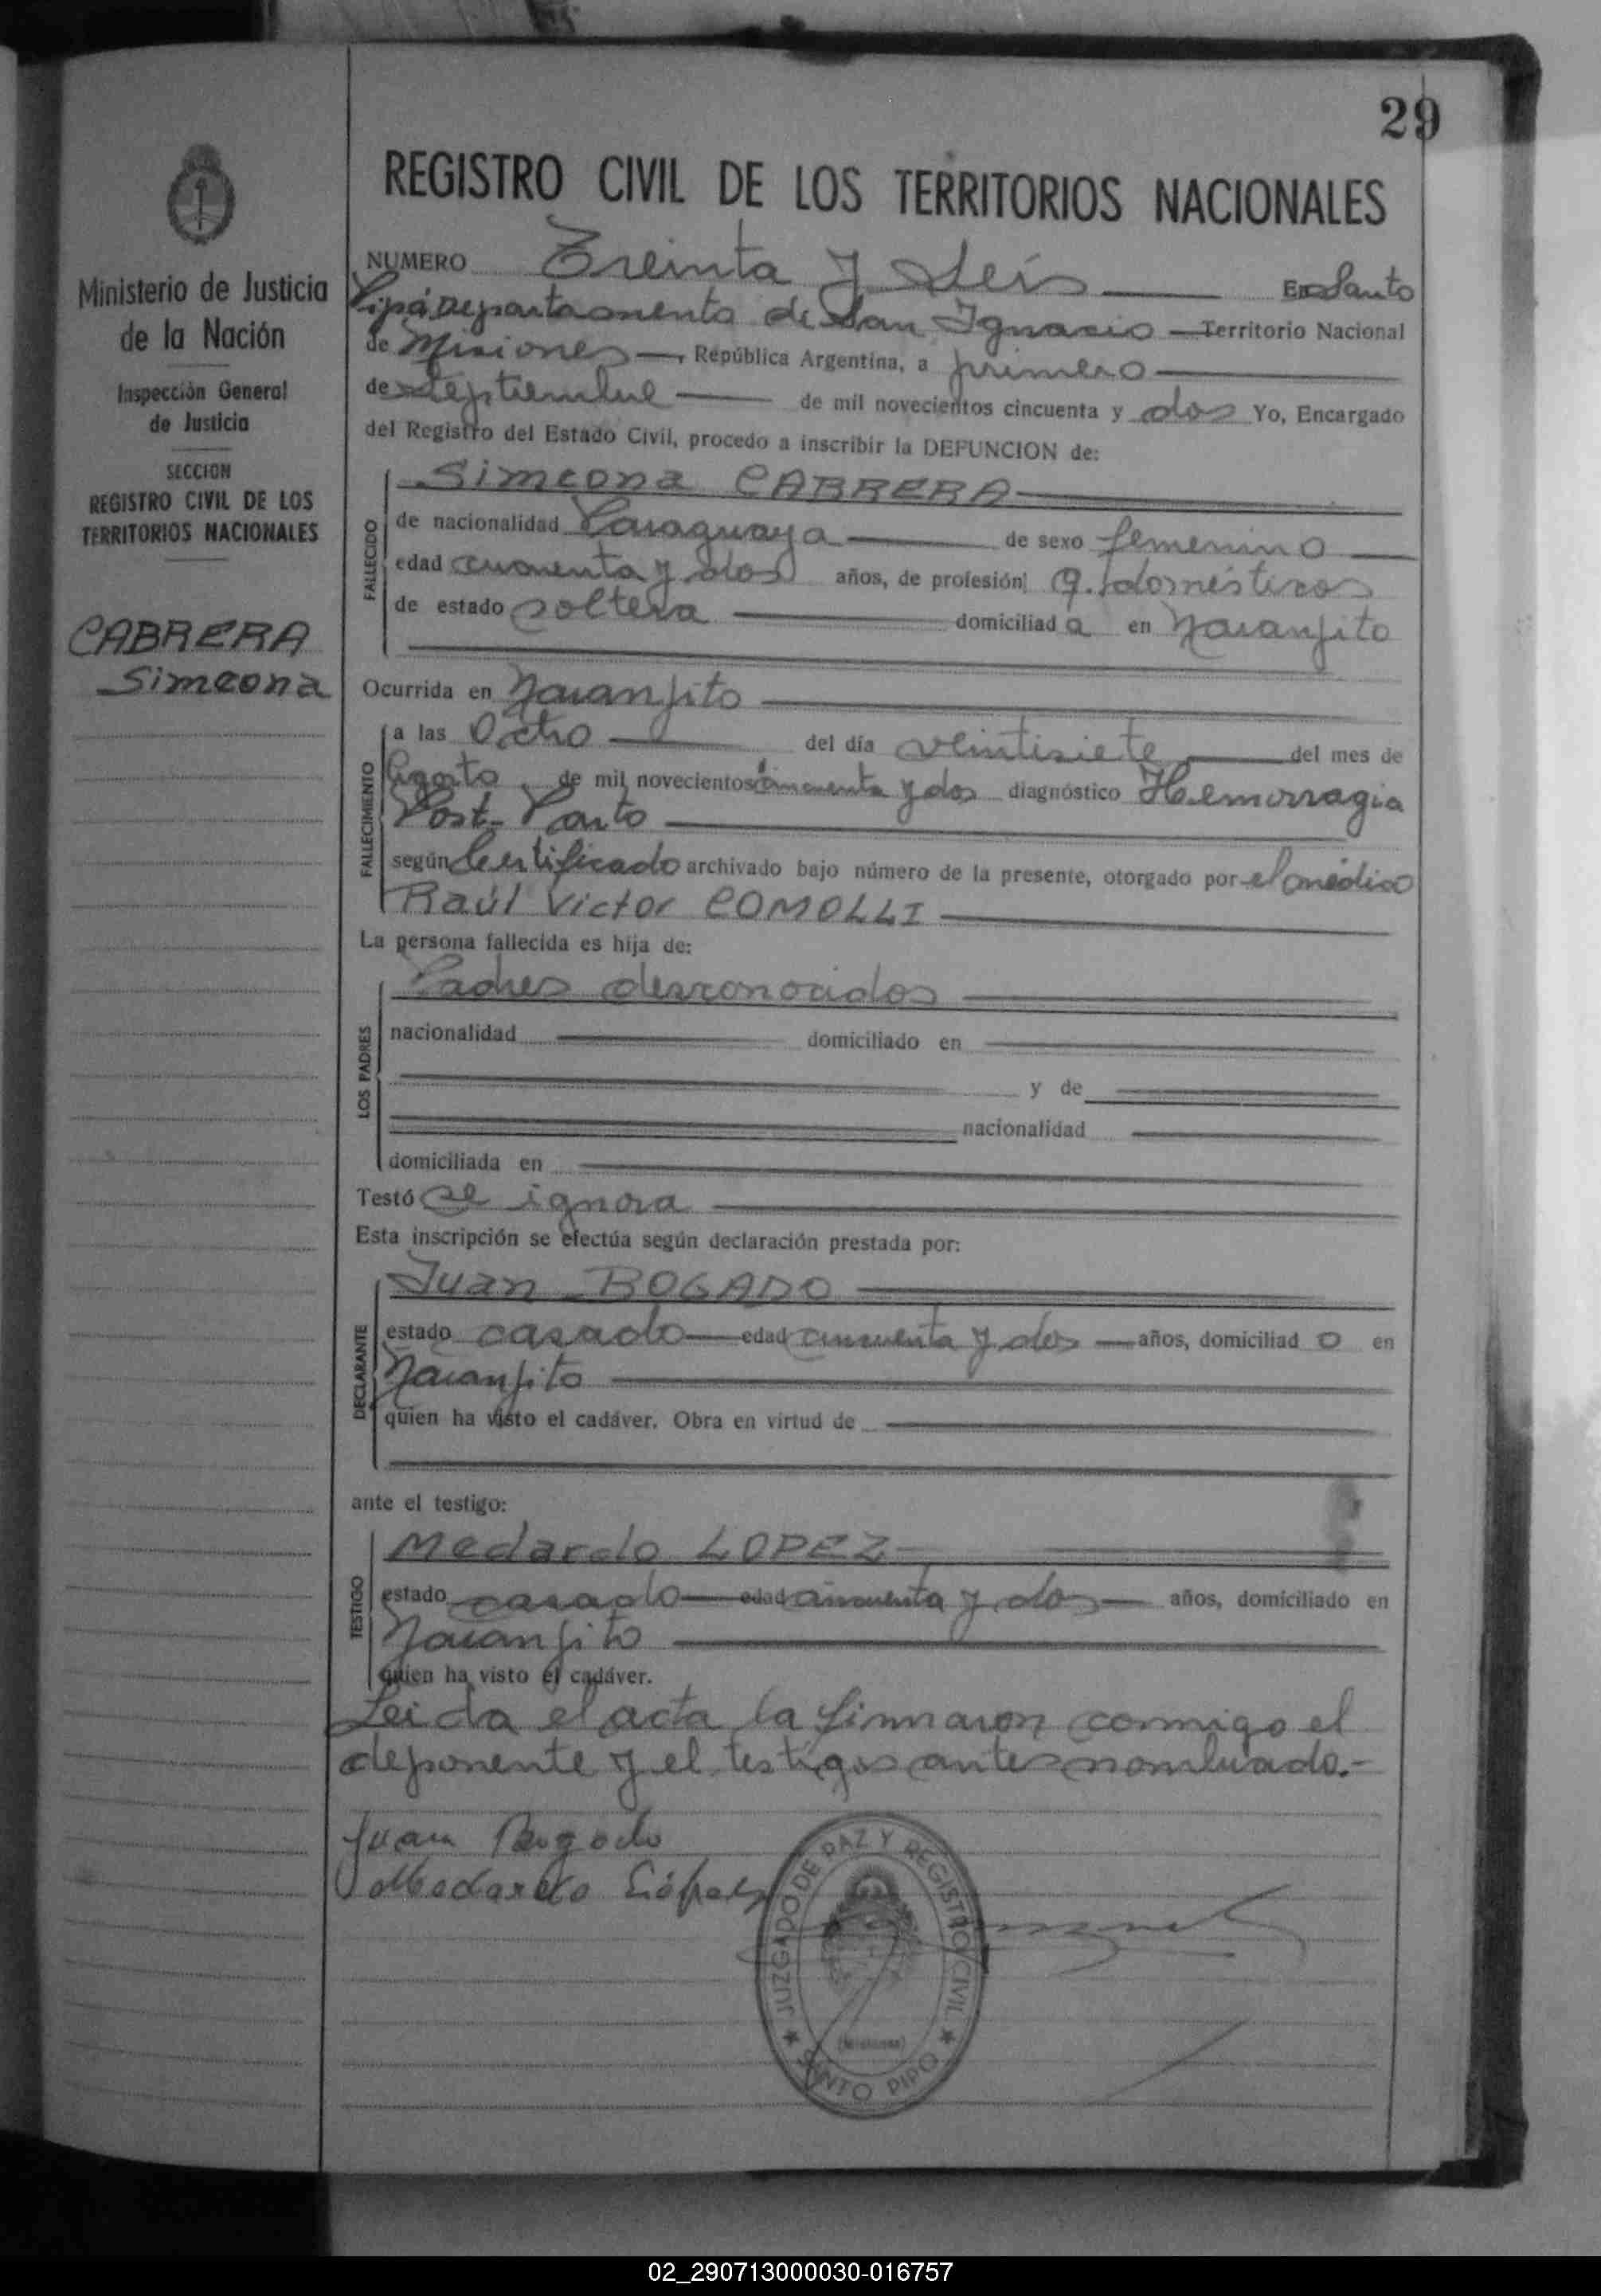 29
REGISTRO CIVIL DE LOS TERRITORIOS NACIONALES
Ministerio de Justicia
de la Nación
Inspección General
de Justicia
SECCION
REGISTRO CIVIL DE LOS
TERRITORIOS NACIONALES
CABRERA
Simeona
NUMERO Treinta y Seis En Santo
Pipó Departamento de San Ignacio Territorio Nacional
de Misiones, República Argentina, a primero
de Septiembre de mil novecientos cincuenta y dos Yo, Encargado
del Registro del Estado Civil, procedo a inscribir la DEFUNCION de:
FALLECIDO
Simeona CABRERA
de nacionalidad Paraguaya de sexo femenino
edad cuarenta y dos años, de profesión q. domésticos
de estado soltera domiciliad a en Naranjito
Ocurrida en Naranjito
FALLECIMIENTO
a las Ocho del día veintisiete del mes de
Agosto de mil novecientos cincuenta y dos diagnóstico Hemorragia
Post-Parto
según Certificado archivado bajo número de la presente, otorgado por el médico
Raúl Victor COMOLLI
La persona fallecida es hija de:
LOS PADRES
Padres desconocidos
nacionalidad domiciliado en
y de
nacionalidad
domiciliada en
Testó se ignora
Esta inscripción se efectúa según declaración prestada por:
DECLARANTE
Juan BOGADO
estado casado edad cincuenta y dos años, domiciliad o en
Naranjito
quien ha visto el cadáver. Obra en virtud de
ante el testigo:
TESTIGO
Medardo LOPEZ
estado casado edad cincuenta y dos años, domiciliado en
Naranjito
quien ha visto el cadáver.
Leida el acta la firmaron conmigo el
deponente y el testigos antes nombrado.-
Juan Bogado
Medardo López
JUZGADO DE PAZ Y REGISTRO CIVIL
(Misiones)
SANTO PIPO
02_290713000030-016757